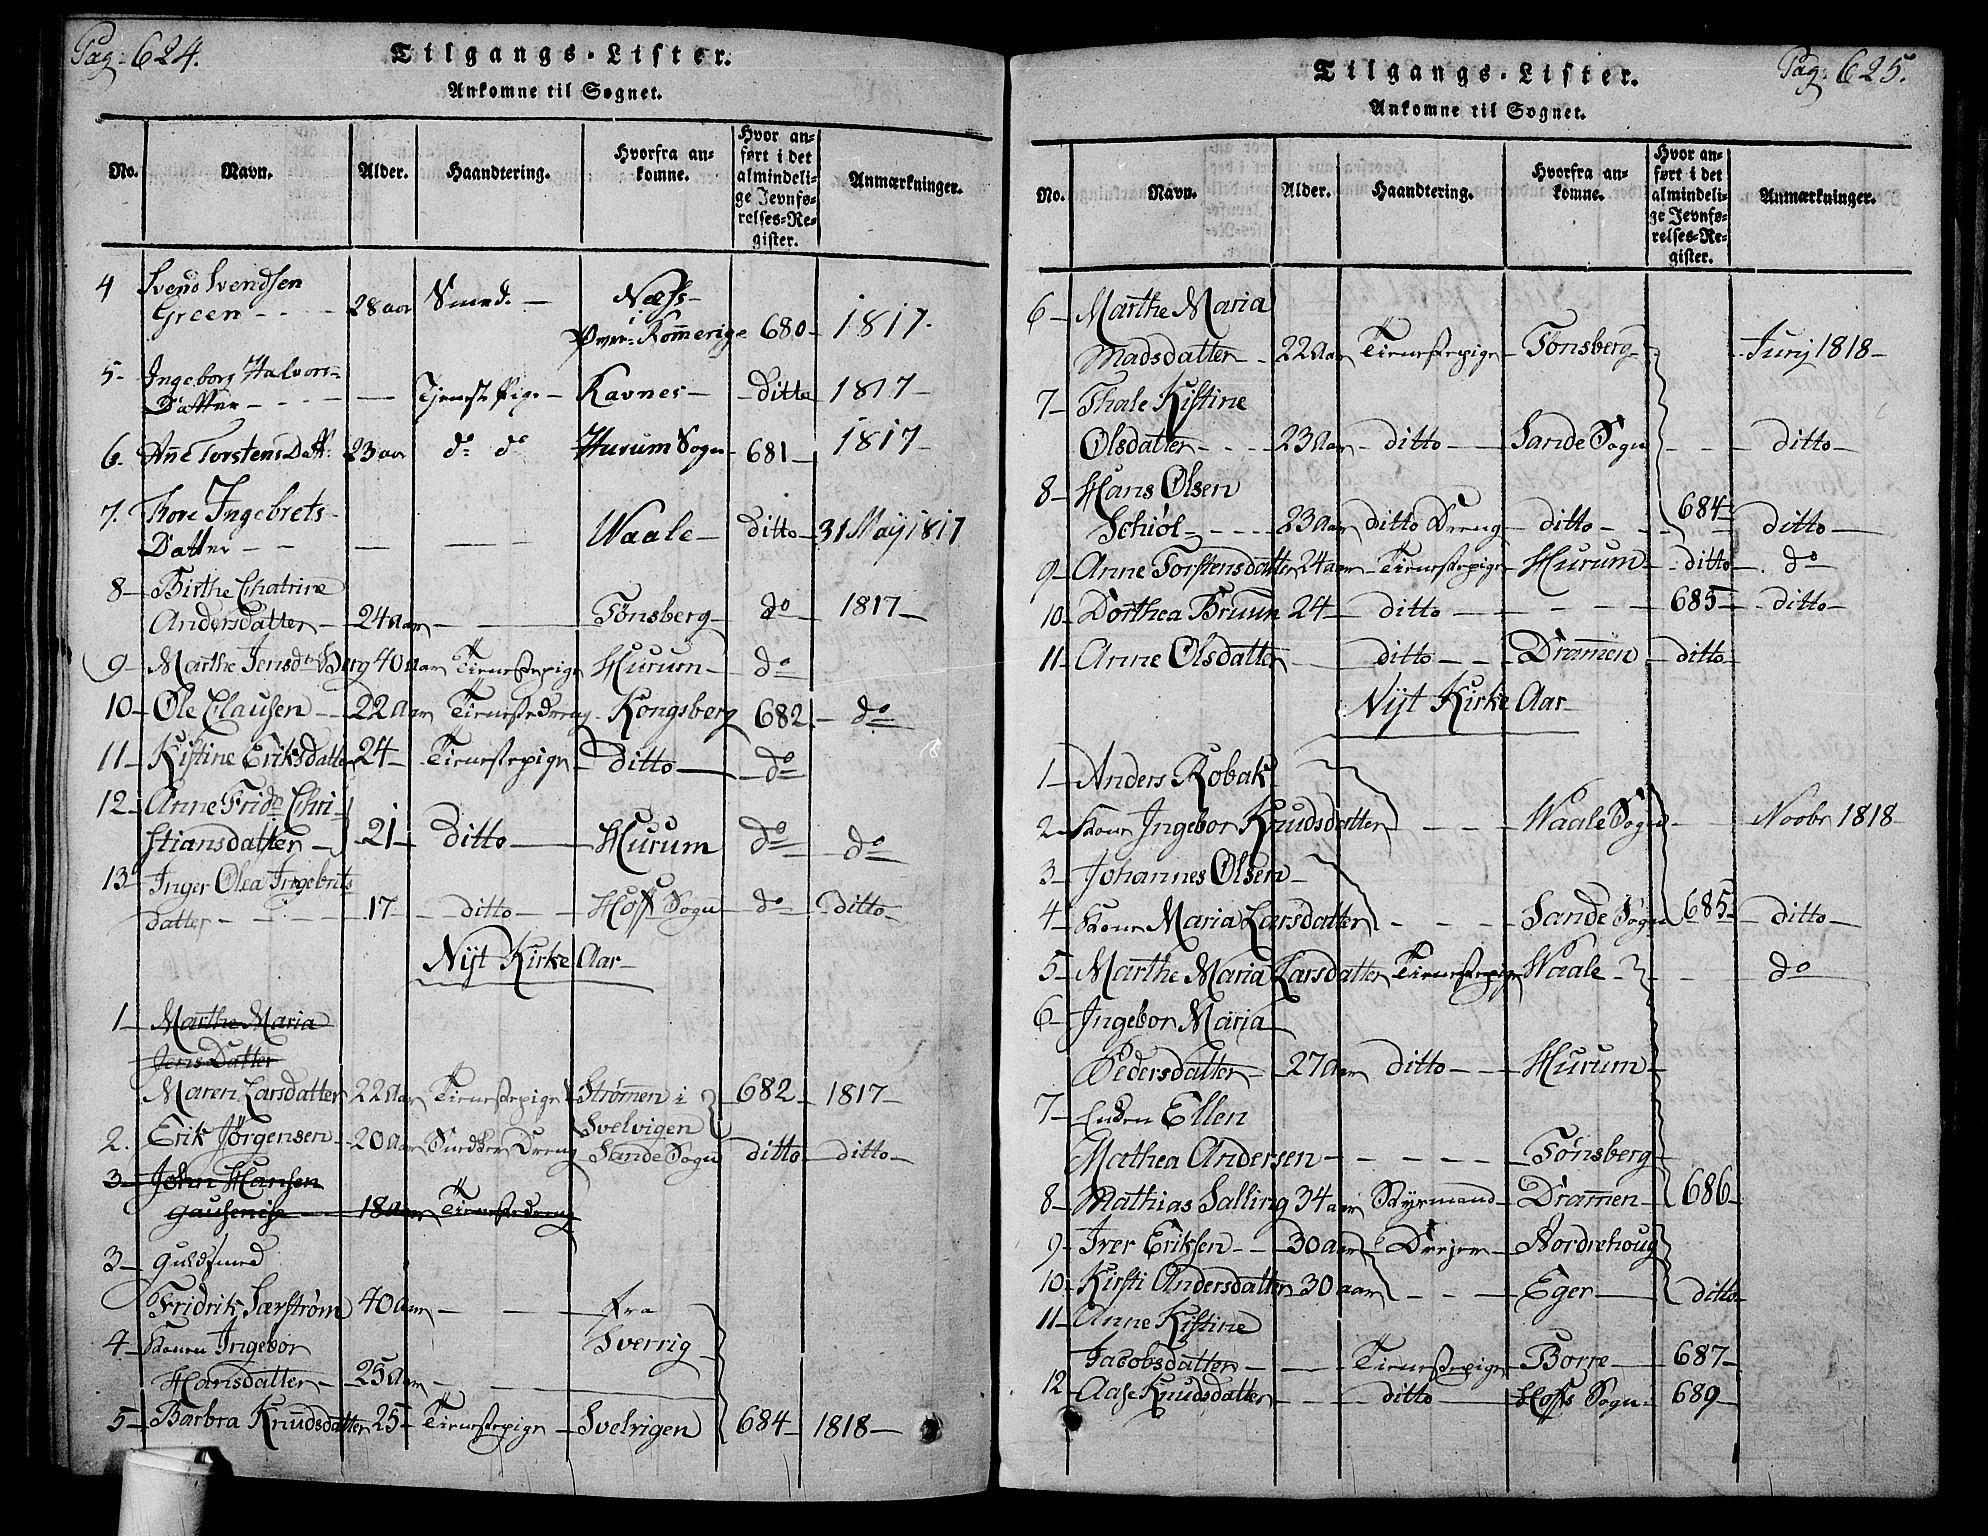 Pag: 624.
Tilgangs-Lister.
Ankomne til Sognet.
No. Navn. Alder. Haandtering. Hvorfra an=
komne. Hvor an=
ført i det
almindeli=
ge Jevnfø=
relses=Re=
gister. Anmærkninger.
4 Svend Svendsen
Green - - - 28 aar Smed. - Næss
i
Øvre Rommerige 680 - 1817.
5. Ingeborg Halvors=
Datter - - - Tjeneste Pige - Ravnes - Ditto 1817 -
6. Añe Torstens Datt. 23 aar do do Hurum Sogn - 681 - 1817 -
7. Thore Ingebrets-
Datter - - - - - Waale - Ditto - 31 Maji 1817
8 - Birthe Chatrine
Andersdatter - 24 Aar - - Tønsberg - do 1817 -
9 - Marthe Jensdtr Berg 40 Aar Tienestepige Hurum - do
10 - Ole Clausen - 22 Aar Tienestedreng - Kongsberg 682 - do
11 - Kistine Eriksdatter 24 - Tienestepige ditto - do
12 - Anne Fride Chri-
stiansdatter - 21 - ditto - Hurum do do
13 - Inger Olea Ingebrits
datter - - - 17 - ditto - Hoff Sogn - do - ditto -
Nyt Kirke Aar -
1 - Marthe Maria
Jens Datter
Maren Larsdatter 22 Aar Tienestepige Strømen i
Svelvigen 682 - 1817 -
2. Erik Jørgensen - 20 Aar Snedker Dreng Sande Sogn ditto - ditto -
3 - John Hansen
18 Aar Tienestedreng
3 - Guldsmed
Fridrik Særstrøm 40 Aar - - fra
Sverrig -
4 - Konen Ingebor
Hansdatter - 25 Aar -
5 - Barbra Knudsdatter 25 - Tienestepige - Svelvigen 684 - 1818 -
Pag: 625.
Tilgangs-Lister.
Ankomne til Sognet.
No. Navn. Alder. Haandtering. Hvorfra an=
komne. Hvor an=
ført i det
almindeli=
ge Jevnfø=
relses=Re=
gister. Anmærkninger.
6 - Marthe Maria
Madsdatter - 22 Aar Tienestepige - Tonsberg - Junj 1818 -
7 - Thale Kistine
Olsdatter - - - 23 Aar - ditto - Sande Sogn - - - ditto -
8 - Hans Olsen
Schiøl - - - 23 Aar ditto Dreng - ditto - 684 ditto -
9 - Anne Torstensdatter 24 aar - Tienestepige - Hurum - ditto - do
10 - Dorthea Bruun 24 - ditto - - - - 685 - ditto -
11 - Anne Olsdatter - ditto - - Dramen - ditto -
Nyt Kirke Aar -
1 - Anders Robak
2 - Kone Ingebor Knudsdatter - - - Waale Sogn - Novbr 1818 -
3 - Johannes Olsen -
4 - Kone Maria Larsdatter - - - Sande Sogn 685 - ditto -
5 - Marthe Maria Larsdatter Tienestepige Waale - - - do
6 - Ingebor Maria
Pedersdatter - 27 Aar ditto - - Hurum
7 - Enken Ellen
Mathea Andersen - - - - - Tønsberg -
8 - Mathias Salling 34 aar Styrmand - Dramen - 686 -
9 - Iver Eriksen - - 30 Aar Drejer - Nordrehoug
10 - Kirsti Andersdatter 30 aar - - - Eger - ditto -
11 - Anne Kistine
Jacobsdatter - - - Tienestepige Borre - 687 -
12 - Aase Knudsdatter - - ditto - Hoffs Sogn - 689 -